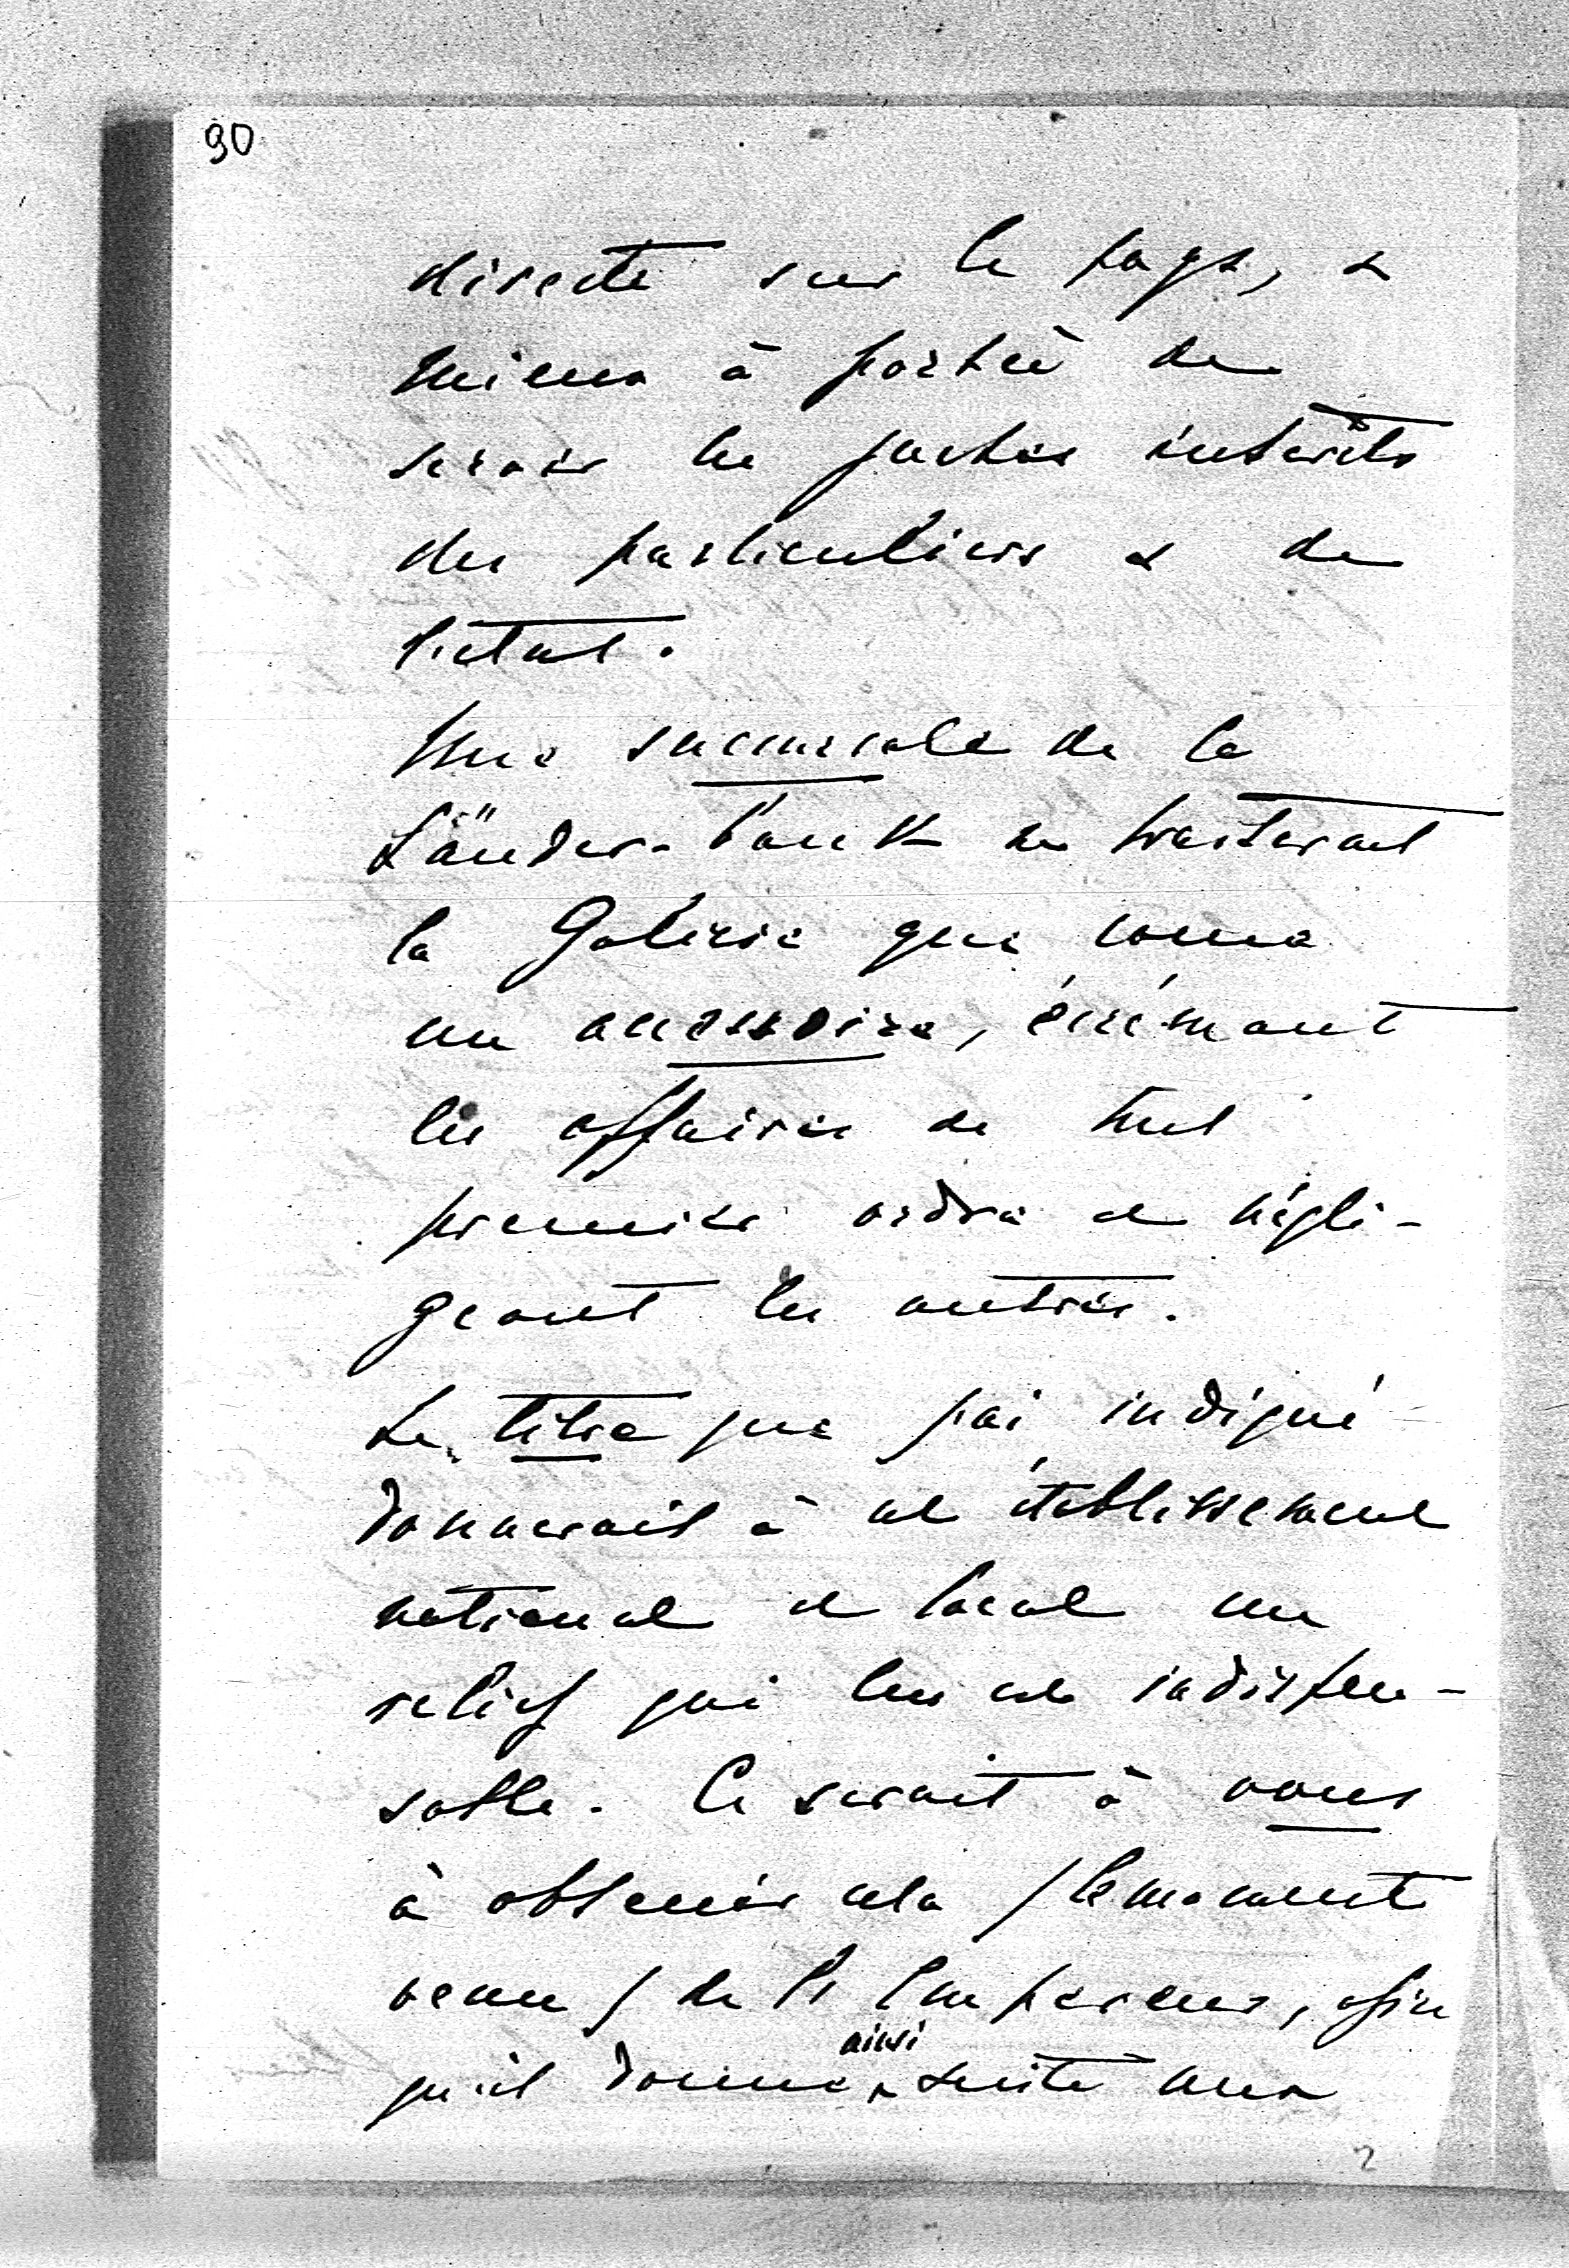 90
directe sur le pays, &
mieux à portée de
servir les justes intérêts
des particuliers & de
l'état.
Une succursale de la
Länder-Bank ne traiterait
la Galicie que come
un accessoire, écrémant
les affaires de tout
premier ordre et négli-
geant les autres.
Le titre que j'ai indiqué
donnerait à cet établissement
national et local un
relief qui lui est indispen-
sable. Ce serait à vous
à obtenir cela / le moment
venu / de l'Empereur, afin
qu'il donne ainsi suite aux
2